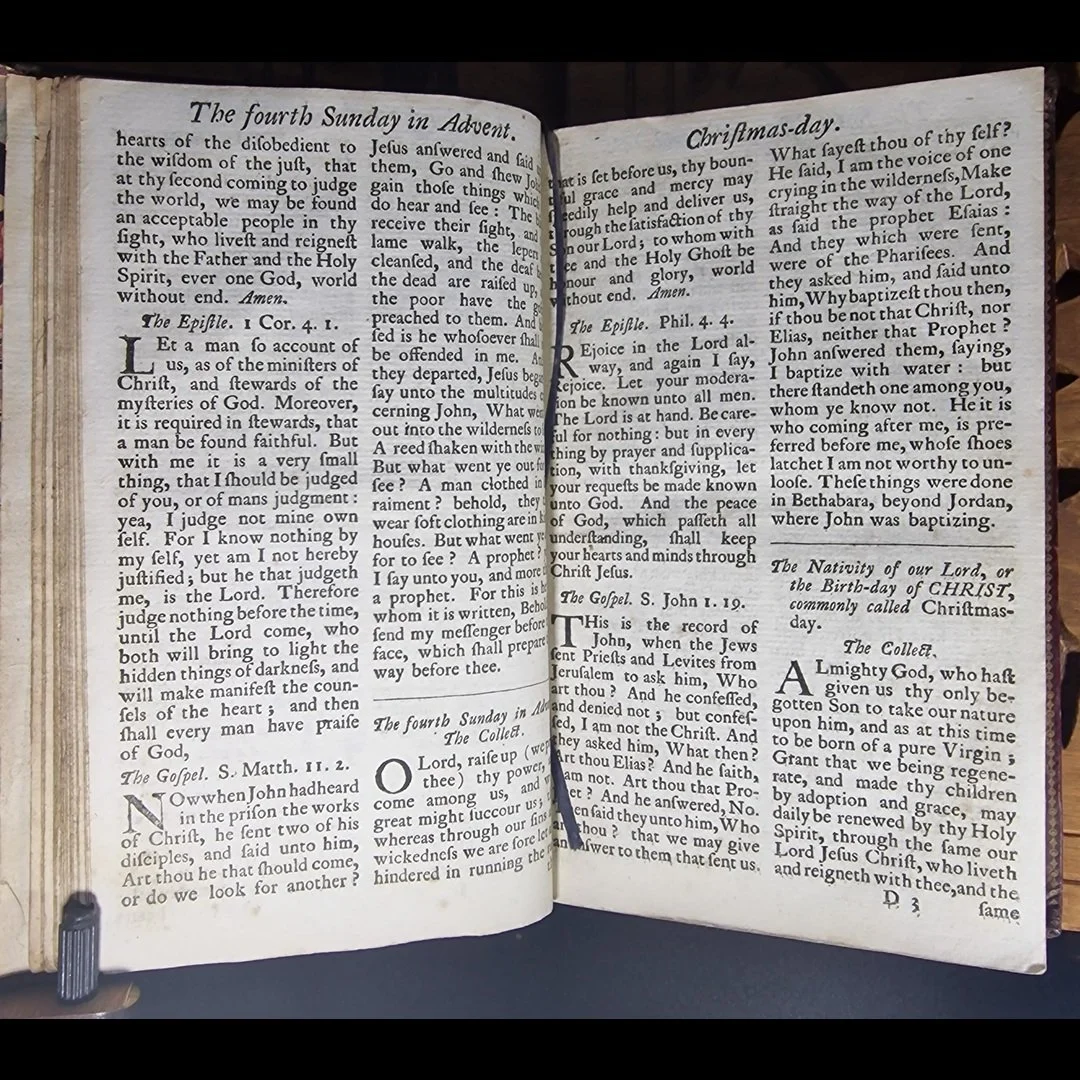 The fourth Sunday in Advent.
hearts of the diſobedient to
the wiſdom of the juſt, that
at thy ſecond coming to judge
the world, we may be found
an acceptable people in thy
ſight, who liveſt and reigneſt
with the Father and the Holy
Spirit, ever one God, world
without end. Amen.
The Epiſtle. 1 Cor. 4. 1.
LEt a man ſo account of
us, as of the miniſters of
Chriſt, and ſtewards of the
myſteries of God. Moreover,
it is required in ſtewards, that
a man be found faithful. But
with me it is a very ſmall
thing, that I ſhould be judged
of you, or of mans judgment:
yea, I judge not mine own
ſelf. For I know nothing by
my ſelf, yet am I not hereby
juſtified; but he that judgeth
me, is the Lord. Therefore
judge nothing before the time,
until the Lord come, who
both will bring to light the
hidden things of darkneſs, and
will make manifeſt the coun-
ſels of the heart; and then
ſhall every man have praiſe
of God,
The Goſpel. S. Matth. 11. 2.
NOw when John had heard
in the priſon the works
of Chriſt, he ſent two of his
diſciples, and ſaid unto him,
Art thou he that ſhould come,
or do we look for another?
Jeſus anſwered and ſaid
them, Go and ſhew
gain thoſe things which
do hear and ſee: The
receive their ſight, and
lame walk, the lepers
cleanſed, and the deaf
the dead are raiſed up,
the poor have the
preached to them. And
ſed is he whoſoever ſhall
be offended in me.
they departed, Jeſus began
ſay unto the multitudes
cerning John, What went
out into the wilderneſs to
A reed ſhaken with the
But what went ye out for
ſee? A man clothed in
raiment? behold, they
wear ſoft clothing are in
houſes. But what went ye
for to ſee? A prophet?
I ſay unto you, and more
a prophet. For this is
whom it is written,
ſend my meſſenger before
face, which ſhall prepare
way before thee.
The fourth Sunday in
The Collect.
O Lord, raiſe up (we
thee) thy power,
come among us, and
great might ſuccour us;
whereas through our ſins
wickedneſs we are ſore
hindered in running the
Chriſtmas-day.
that is ſet before us, thy boun-
tiful grace and mercy may
ſpeedily help and deliver us,
through the ſatisfaction of thy
Son our Lord; to whom with
thee and the Holy Ghoſt be
honour and glory, world
without end. Amen.
The Epiſtle. Phil. 4. 4.
REjoice in the Lord al-
way, and again I ſay,
Rejoice. Let your modera-
tion be known unto all men.
The Lord is at hand. Be care-
ful for nothing: but in every
thing by prayer and ſupplica-
tion, with thankſgiving, let
your requeſts be made known
unto God. And the peace
of God, which paſſeth all
underſtanding, ſhall keep
your hearts and minds through
Chriſt Jeſus.
The Goſpel. S. John 1. 19.
THis is the record of
John, when the Jews
ſent Prieſts and Levites from
Jeruſalem to ask him, Who
art thou? And he confeſſed,
and denied not; but confeſ-
ſed, I am not the Chriſt. And
they asked him, What then?
Art thou Elias? And he ſaith,
I am not. Art thou that Pro-
phet? And he anſwered, No.
Then ſaid they unto him, Who
art thou? that we may give
an anſwer to them that ſent us.
What ſayeſt thou of thy ſelf?
He ſaid, I am the voice of one
crying in the wilderneſs, Make
ſtraight the way of the Lord,
as ſaid the prophet Eſaias:
And they which were ſent,
were of the Phariſees. And
they asked him, and ſaid unto
him, Why baptizeſt thou then,
if thou be not that Chriſt, nor
Elias, neither that Prophet?
John anſwered them, ſaying,
I baptize with water: but
there ſtandeth one among you,
whom ye know not. He it is
who coming after me, is pre-
ferred before me, whoſe ſhoes
latchet I am not worthy to un-
looſe. Theſe things were done
in Bethabara, beyond Jordan,
where John was baptizing.
The Nativity of our Lord, or
the Birth-day of CHRIST,
commonly called Chriſtmas-
day.
The Collect.
ALmighty God, who haſt
given us thy only be-
gotten Son to take our nature
upon him, and as at this time
to be born of a pure Virgin;
Grant that we being regene-
rate, and made thy children
by adoption and grace, may
daily be renewed by thy Holy
Spirit, through the ſame our
Lord Jeſus Chriſt, who liveth
and reigneth with thee, and the
D 3
ſame